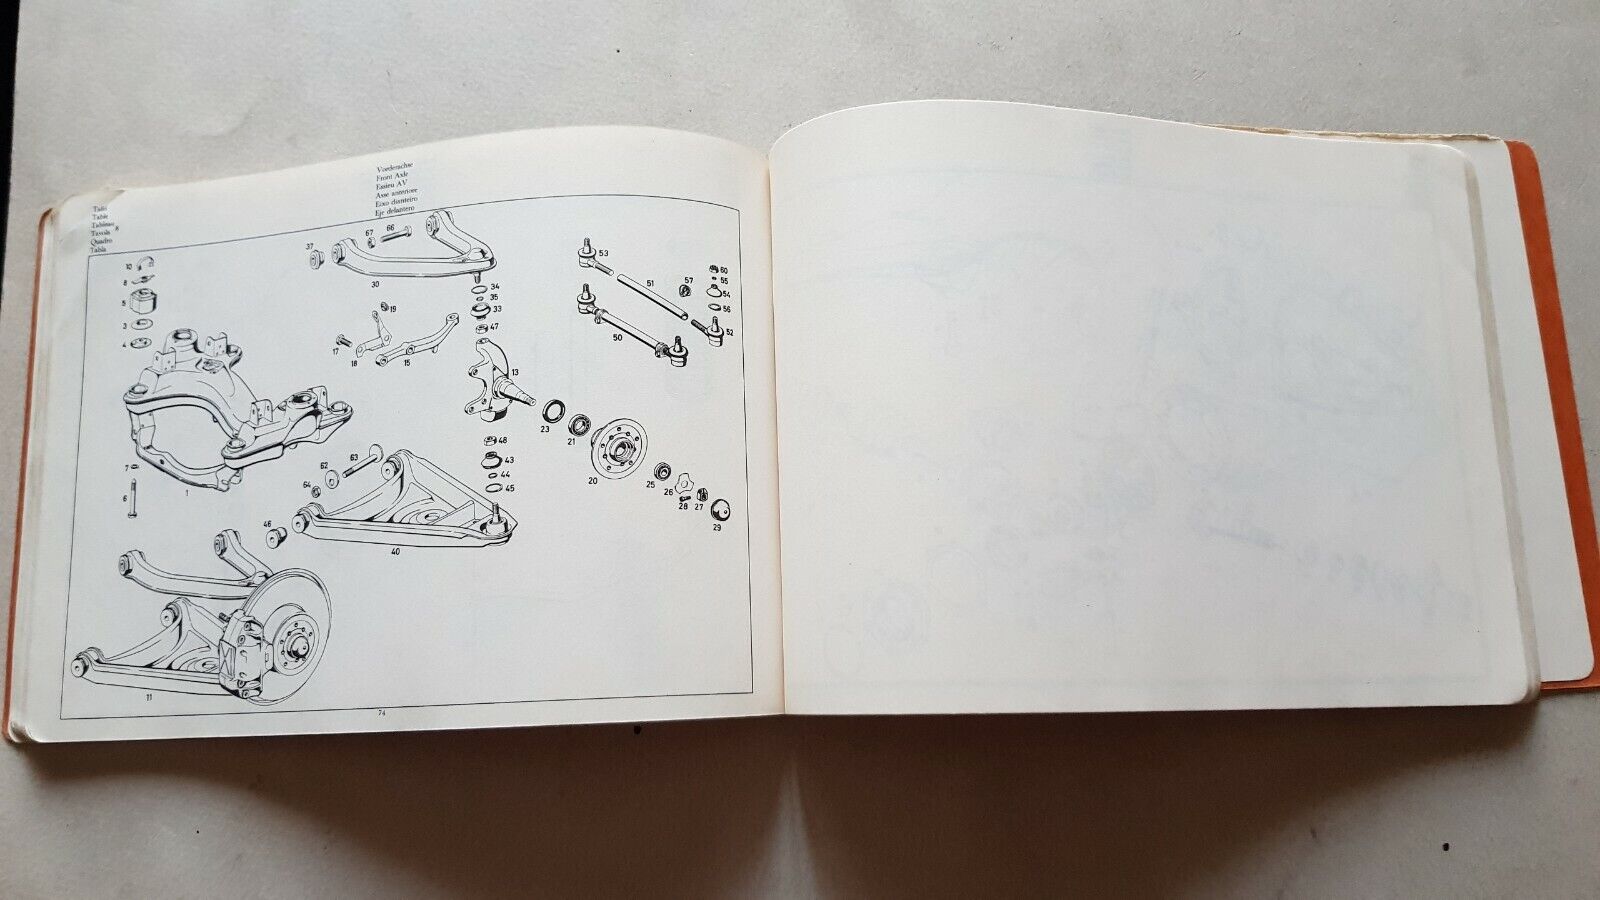 Vorderachse
Front Axle
Essieu AV
Asse anteriore
Eixo dianteiro
Eje delantero
Tafel
Table
Tableau
Tavola 8
Quadro
Tabla
10
8
5
3
4
7
6
1
37
67
66
30
19
17
18
15
34
35
33
47
13
53
51
57
60
55
54
56
52
50
23
21
20
25
26
28
27
29
48
43
44
45
62
63
64
46
40
11
74